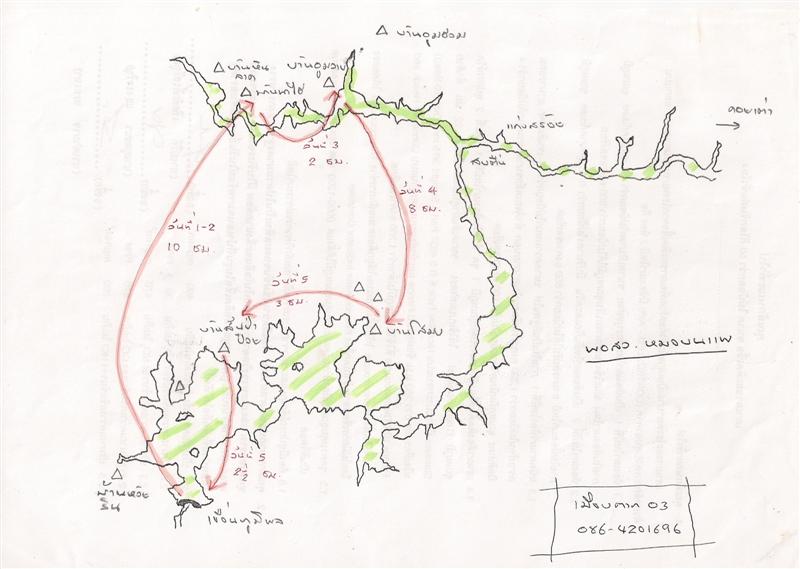 บ้านอูมฮวม
บ้านหิน
ลาด
บ้านนาไฮ่
บ้านอูมวาบ
แก่งสร้อย
ดอยเต่า
สบหิน
วันที่ 3
2 ชม.
วันที่ 4
8 ชม.
วันที่ 1-2
10 ชม.
วันที่ 5
3 ชม.
บ้านสันป่า
ป๋วย
บ้านโสม
พอสว. หมอบนแพ
วันที่ 5
2½ ชม.
บ้านห้วย
เขื่อนภูมิพล
เมืองตาก 03
086-4201696